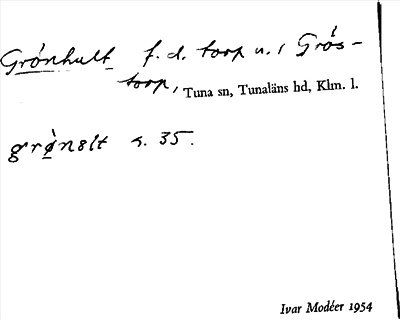 Grónhult f. d. torp u. i Grós-
torp, Tuna sn, Tunaläns hd, Klm. l.
grø̀nølt s. 35.
Ivar Modéer 1954